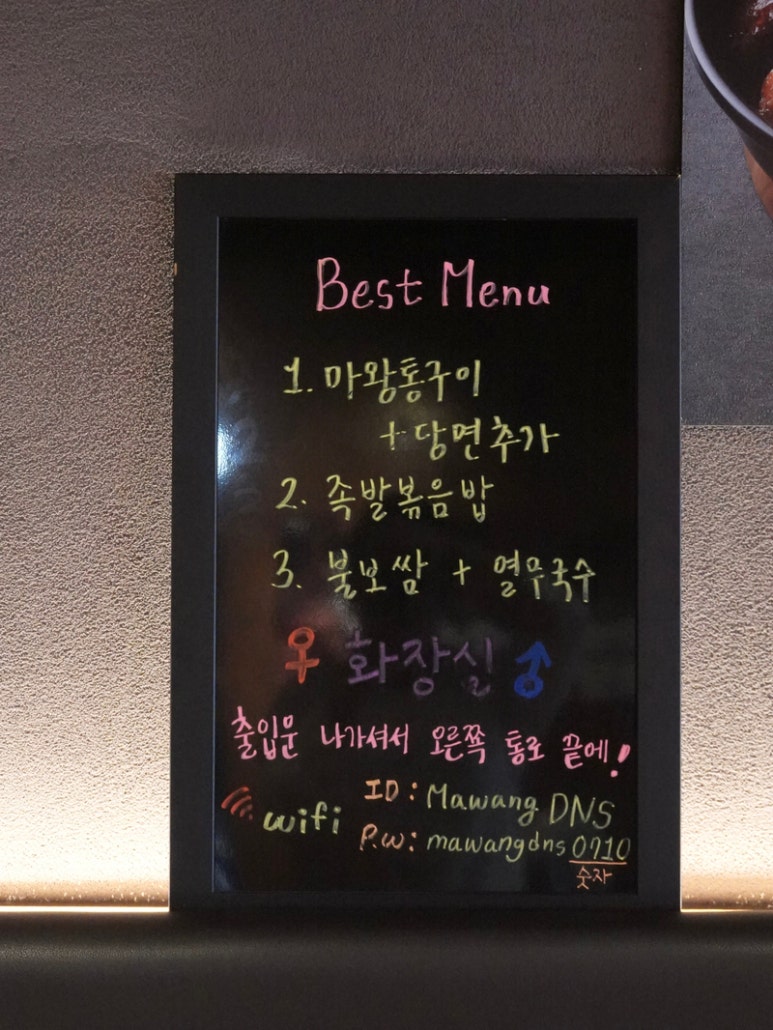 Best Menu
1. 마왕통구이
+ 당면추가
2. 족발볶음밥
3. 불보쌈 + 열무국수
♀ 화장실 ♂
출입문 나가셔서 오른쪽 통로 끝에!
wifi ID : Mawang DNS
P.W : mawangdns 0710
숫자